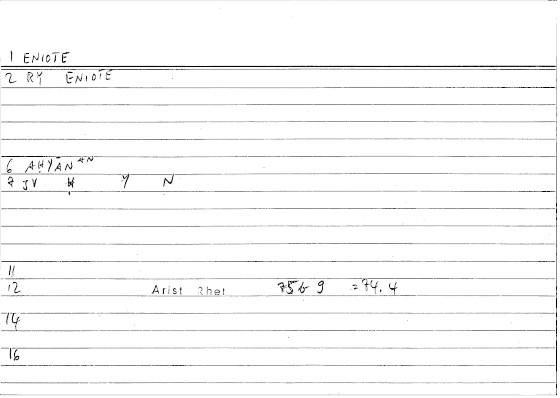 1 ENIOTE
2 RY ENIOTE
6 AḤYĀNᴬᴺ
7 JV Ḥ Y N
11
12 Arist Rhet 75b9 =74.4
14
16